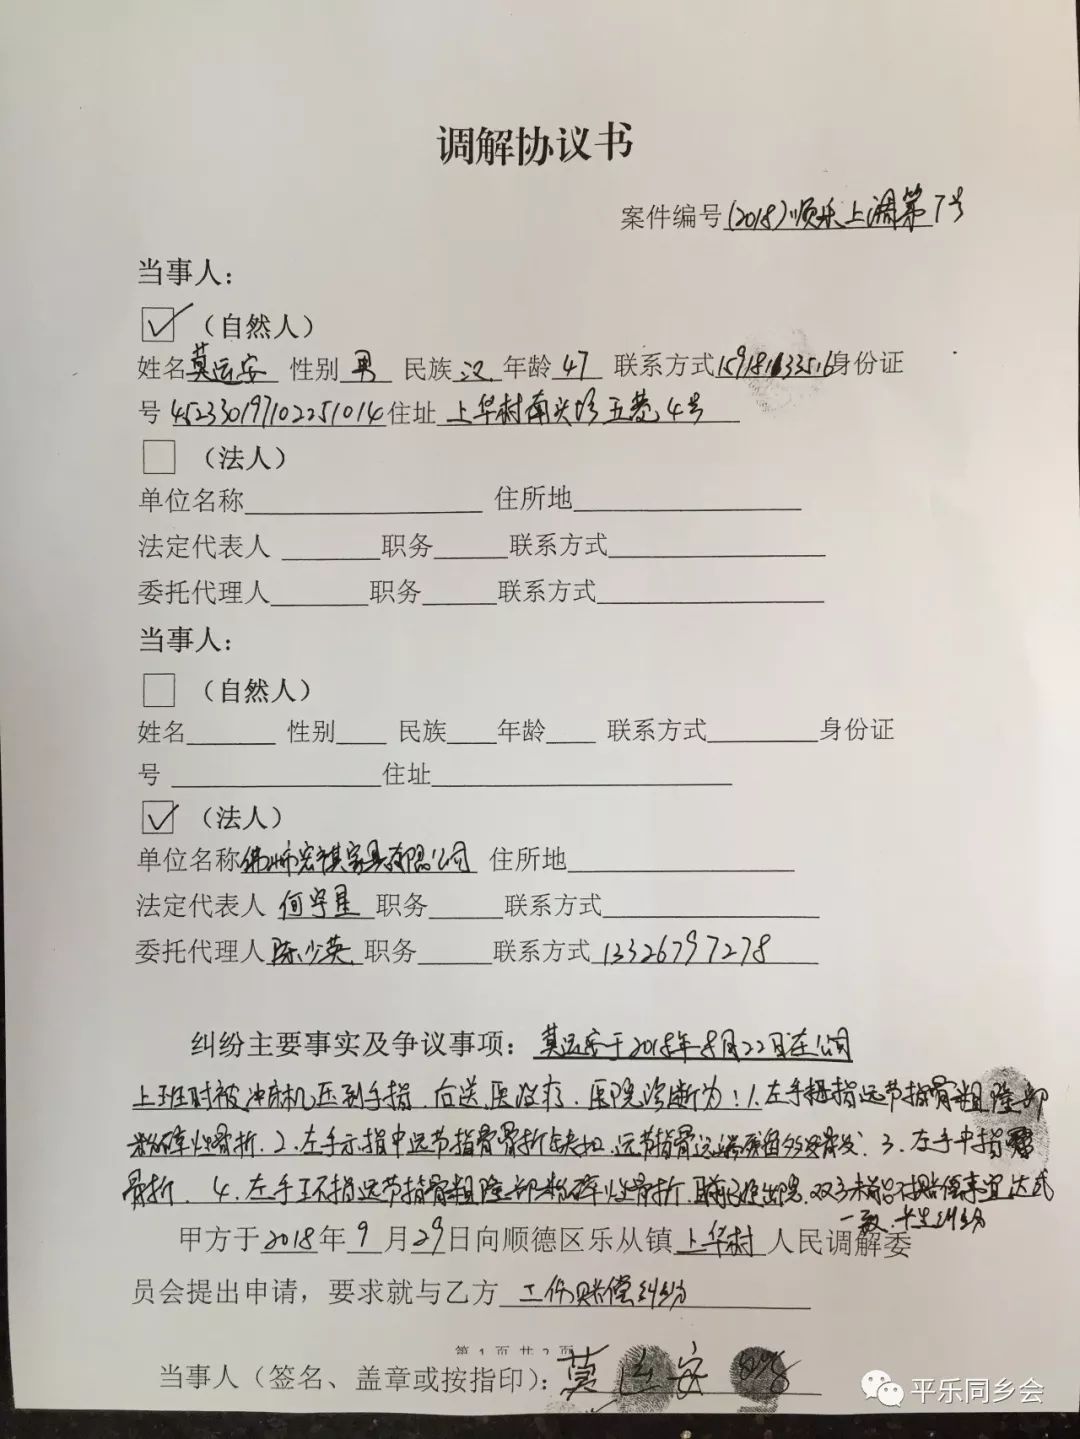 调解协议书
案件编号(2018)顺乐上调第7号
当事人：
（自然人）
姓名莫运安 性别 男 民族 汉 年龄 47 联系方式15918133516身份证
号 452330197102251014 住址 上华村南兴坊五巷4号
（法人）
单位名称 住所地
法定代表人 职务 联系方式
委托代理人 职务 联系方式
当事人：
（自然人）
姓名 性别 民族 年龄 联系方式 身份证
号 住址
（法人）
单位名称 家具有限公司 住所地
法定代表人 何宇星 职务 联系方式
委托代理人 陈少英 职务 联系方式 13326797278
纠纷主要事实及争议事项：莫运安于2018年8月22日在公司
上班时被冲床机压到手指.后送医 .医院诊断为：1.左手拇指远节指骨粗隆部
粉碎性骨折.2.左手示指中远节指骨骨折 .远节指骨远端 3.左手中指
骨折. 4.左手环指远节指骨粗隆部粉碎性骨折. 出院.双方未 赔偿事宜达成
一致.产生纠纷
甲方于2018年9月29日向顺德区乐从镇上华村人民调解委
员会提出申请，要求就与乙方 工伤赔偿纠纷
第 1 页 共 2 页
当事人（签名、盖章或按指印）：莫运安
平乐同乡会